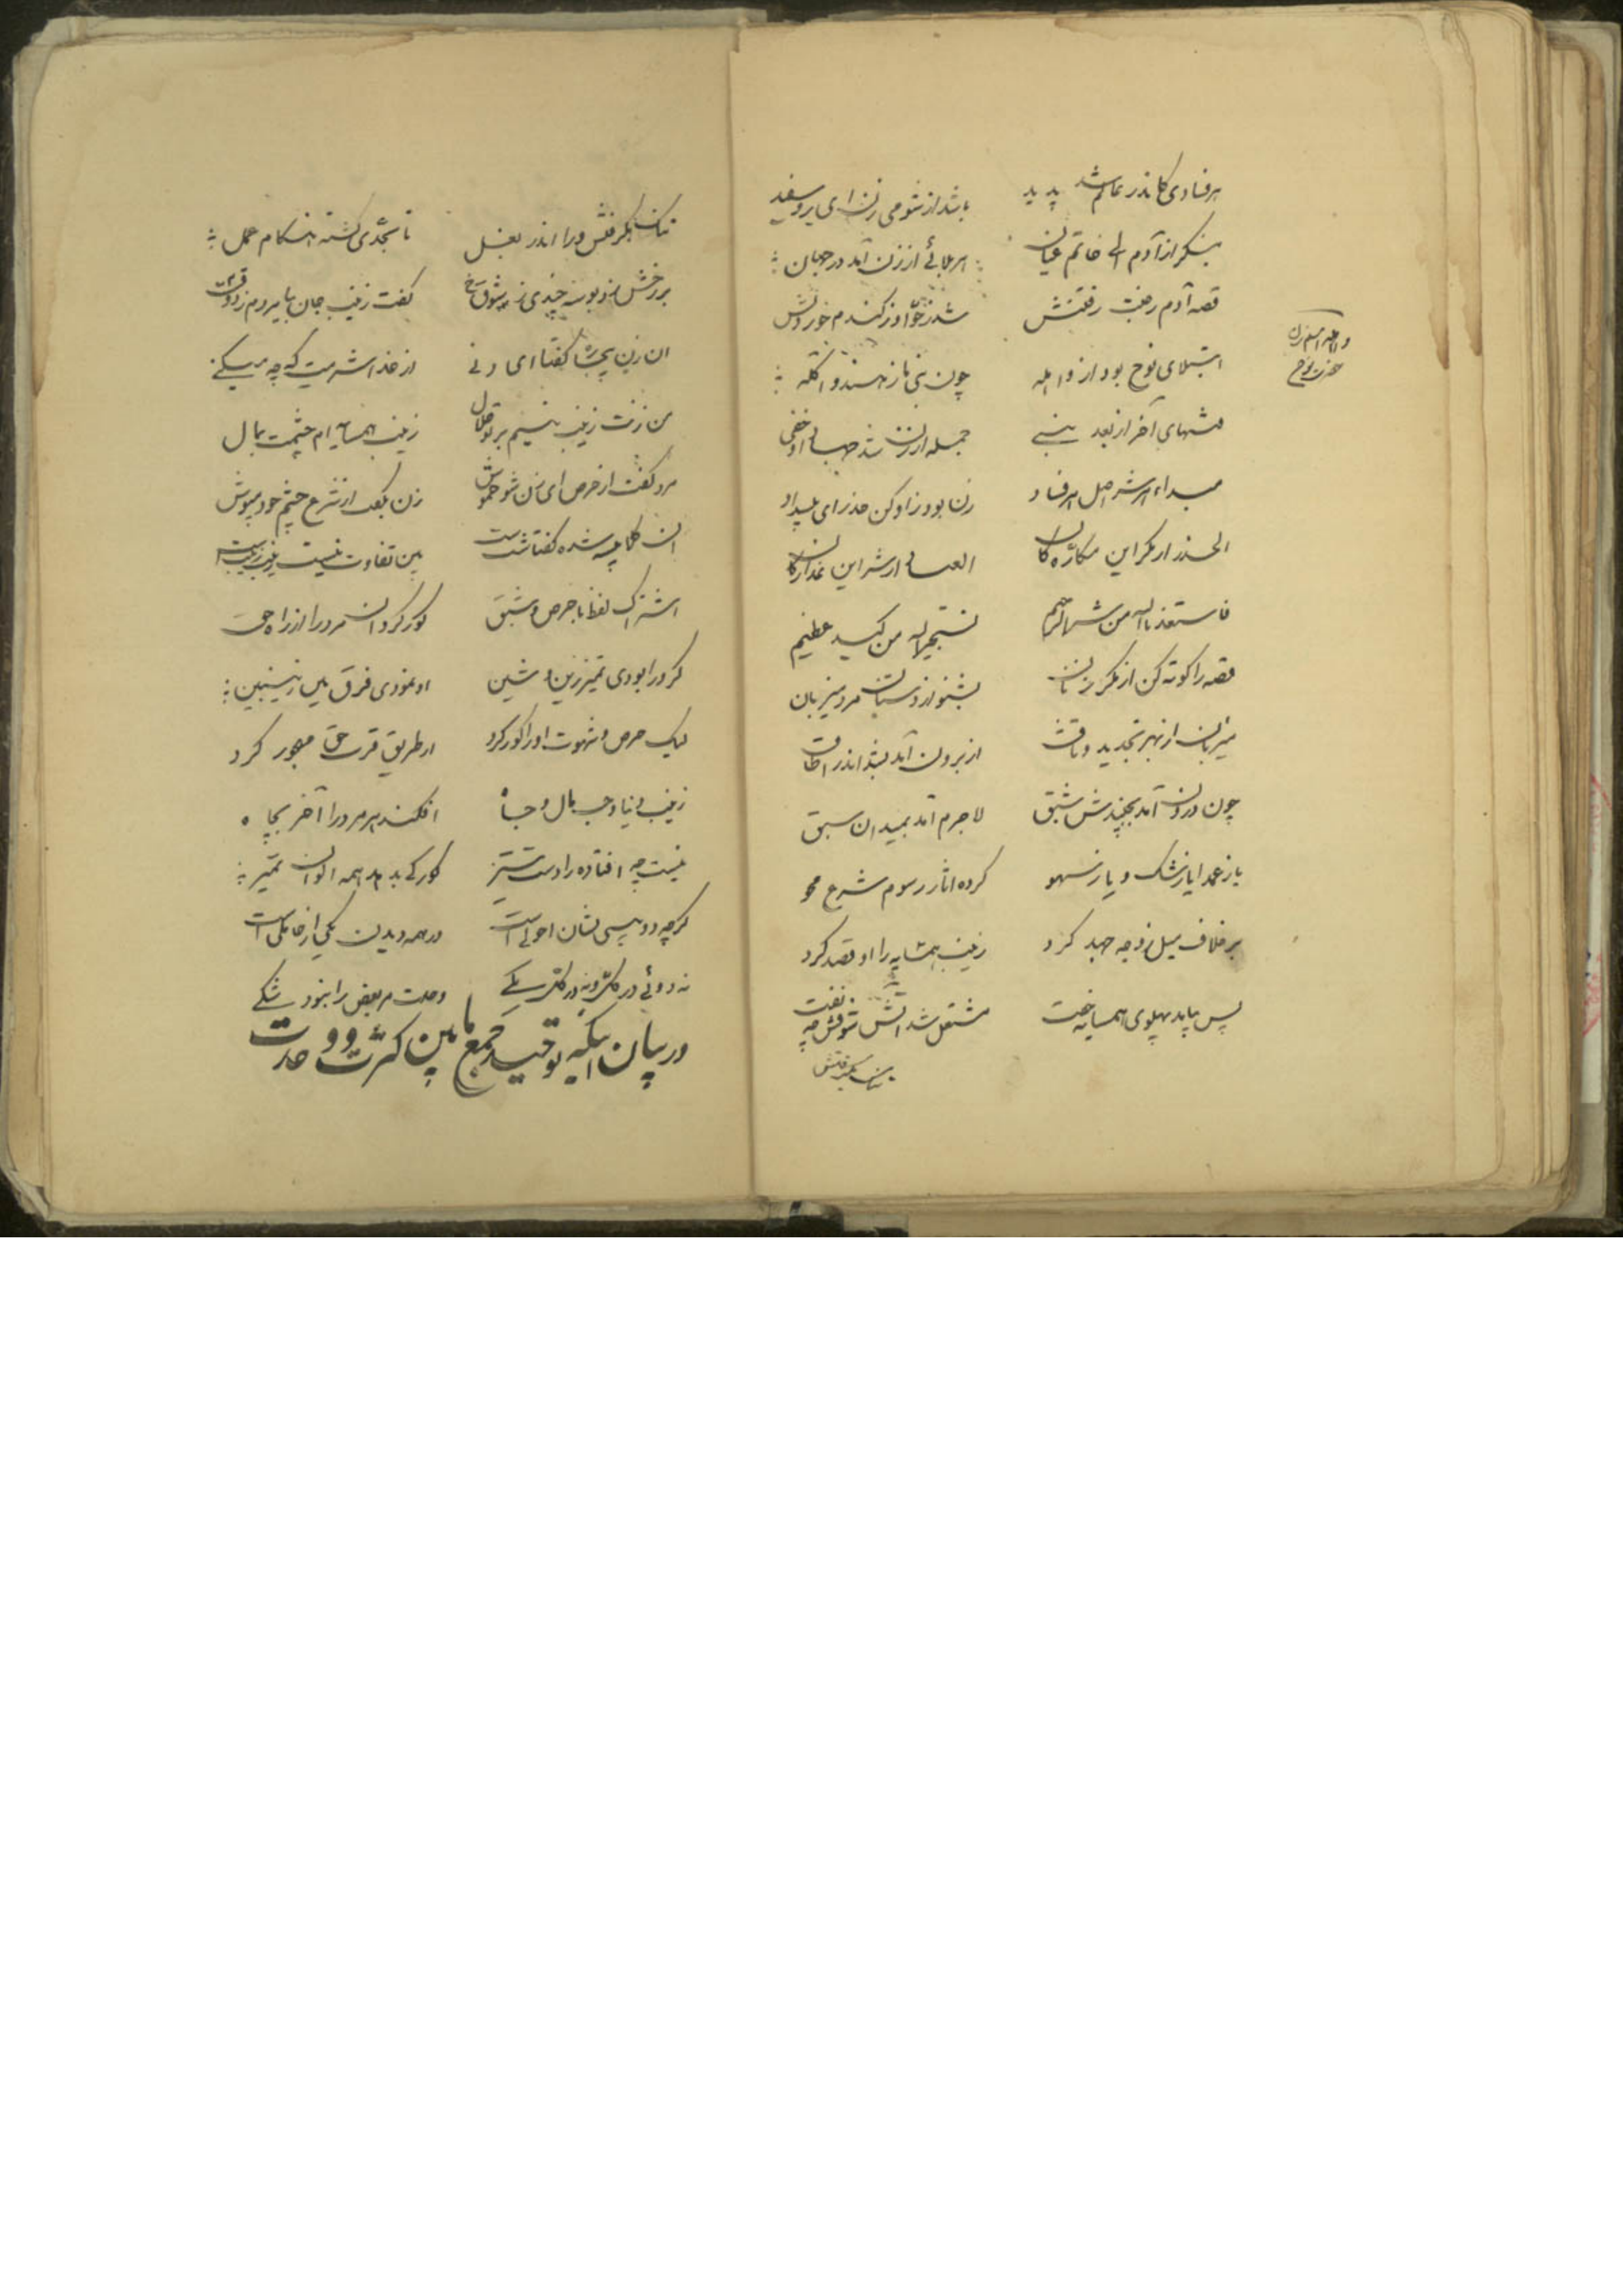 هر فسادی کاندر عالم شد پدید باشد از شومی زن ای رو سفید
بنگر از آدم الی خاتم عیان هر بلائی از زن آمد در جهان
قصه آدم زجنت رفتنش شد ز حوا وز گندم خوردنش
ابتلای نوح بود از واهله چون نبی باز هند و آکله
فتنهای آخر از بعد نبی جمله از زن شد جلی او خفی
مبداء هر شر اصل هر فساد زن بود زو کن حذر ای
الحذر از مکر این مکاره‌گان العیاذ از شر این غدارگان
فاستعذ بالله من شر الرجیم نستجیر الله من کید عظیم
قصه را کوته کن از مکر زنان بشنو از دستان مرد میزبان
میزبان از بهر تجدید وثاق از برون آمد بشد اندر اطاق
چون درون آمد بجنبیدش شبق لاجرم آمد بمیدان سبق
یا ز عمد یا ز شک و یا ز سهو کرده آثار رسوم شرع محو
بر خلاف میل زوجه جهد کرد زینب همسایه را او قصد کرد
پس بیامد پهلوی همسایه خفت مشتعل شد آتش شوقش چه نفت
تنک بگرفتش
واهله اسم زن
حضرت نوح
تنک بگرفتش ورا اندر بغل تا بجدی گشته هنگام عمل
بر رخش زد بوسه چندی ز شوق گفت زینب جان بیا بردم ز ذوق
آن زن بیچاره گفتا ای دنی از خدا شرمیت که چه میکنی
من زنت زینب نیم بر تو حلال زینب همسایه‌ام چشمت بمال
مرد گفت از حرص ای زن شو خموش زن بگفت از شرع چشم خود مپوش
آن کلابیسه شده گفتا شبست بین تفاوت نیست زینب زینبست
اشتراک لفظ با حرص و شبق کور کرد آن مرد را از راه حق
گر ورا بودی تمیز زین و شین او نمودی فرق بین زینبین
لیک حرص و شهوت او را کور کرد از طریق قرب حق مهجور کرد
زینب دنیا و حب مال و جاه افکند هر مرد را آخر بچاه
نیست چه افتاده را دست ستیز کور کی بدهد همه الوان تمیز
گرچه دو بینی نشان احولی است در همه دیدن یکی از جاهلی است
نه دوئی در کثر و نه در کثر یکی وحدت مر بعض را نبود شکی
در بیان اینکه توحید جمع مابین کثرت و وحدت